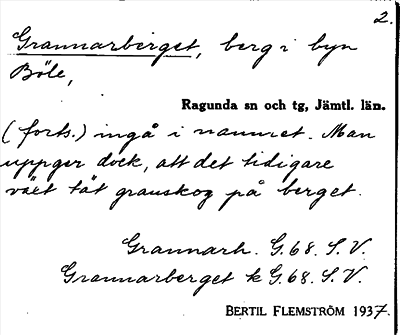 2.
Grannarberget, berg i byn
Böle,
Ragunda sn och tg, Jämtl. län.
(forts.) ingå i namnet. Man
uppger dock, att det tidigare
växt tät granskog på berget.
Grannarb. G.68. S.V.
Grannarberget k G.68. S.V.
BERTIL FLEMSTRÖM 1937.